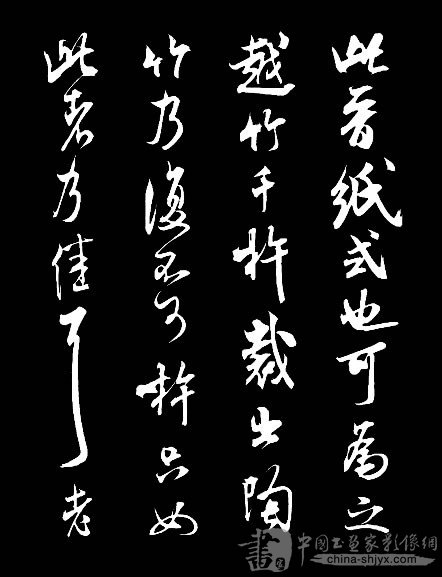 此晉紙式也可為之
越竹千杵裁出陶
竹乃復不可杵只如
此者乃佳耳老
書
中国书画家影像網
china-shjyx.com